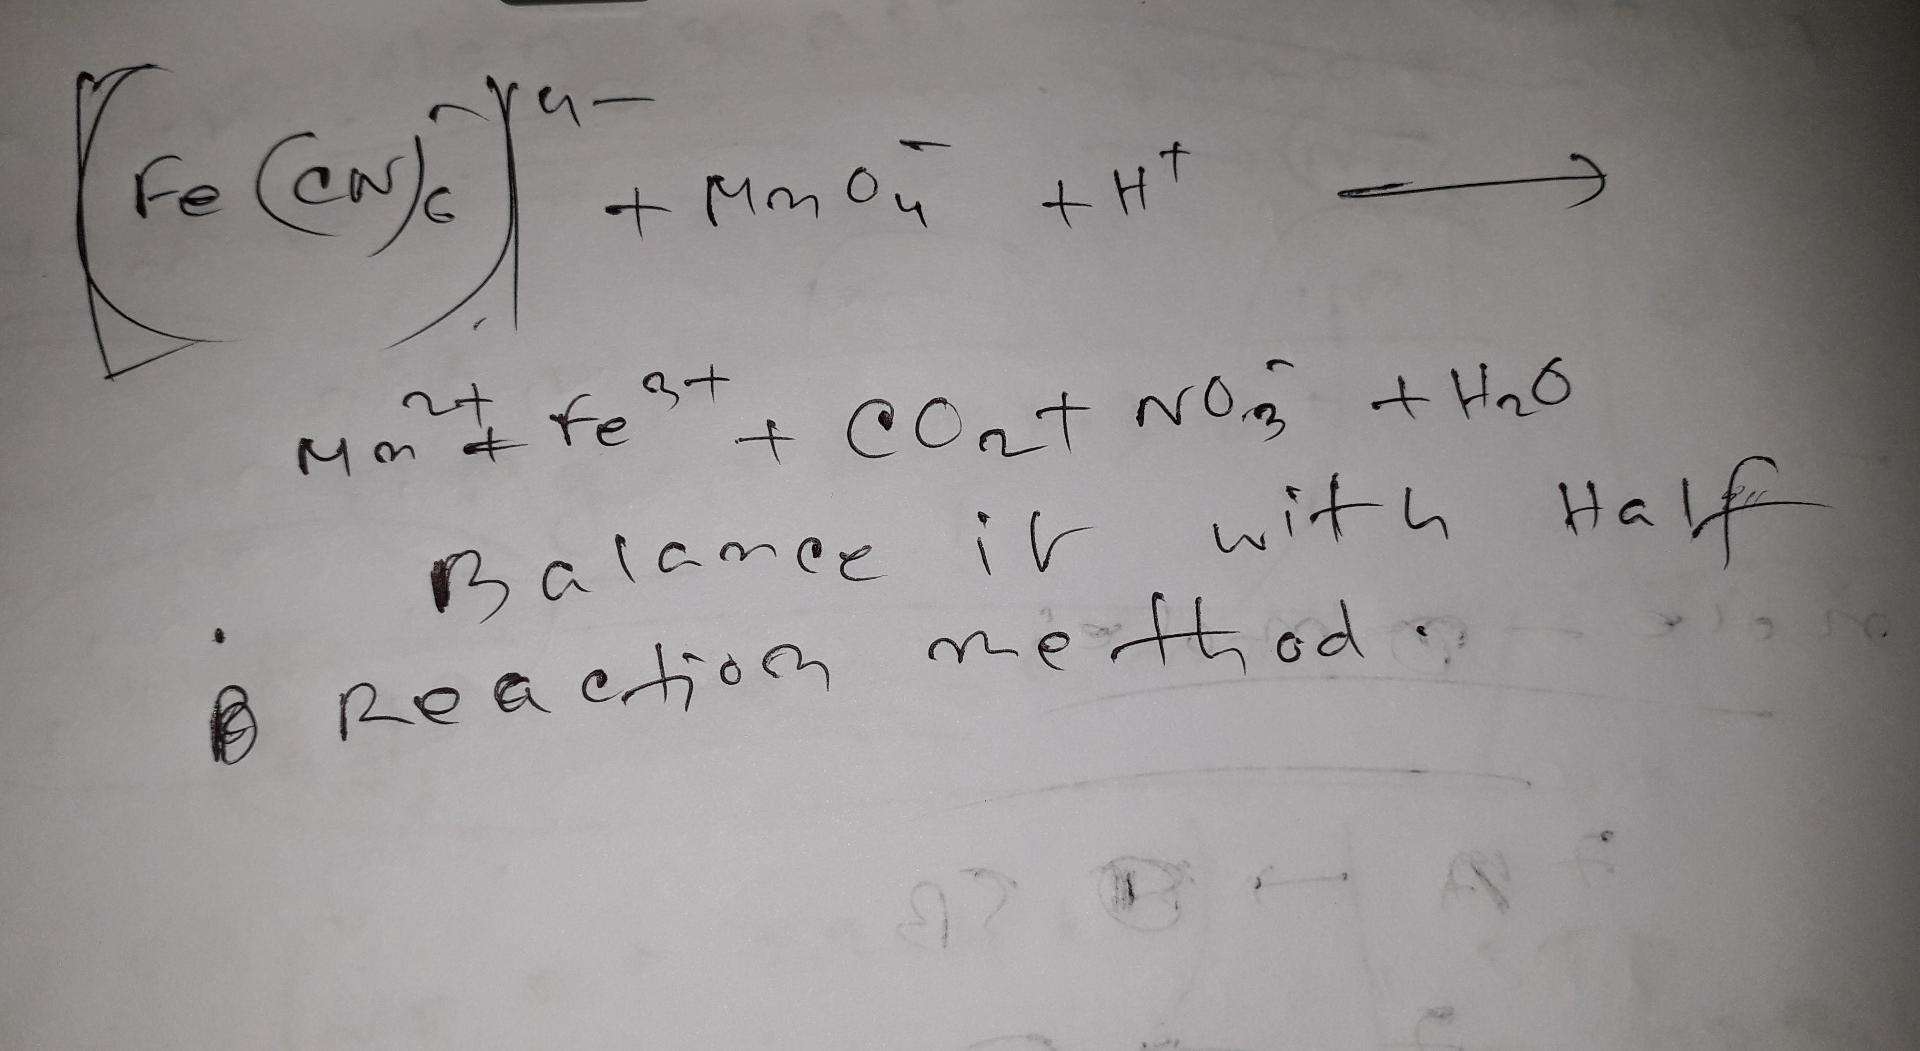 [Fe(CN)₆]⁴⁻ + MnO₄⁻ + H⁺ ⟶
Mn²⁺ + Fe³⁺ + CO₂ + NO₃⁻ + H₂O
Balance it with Half
Reaction method.